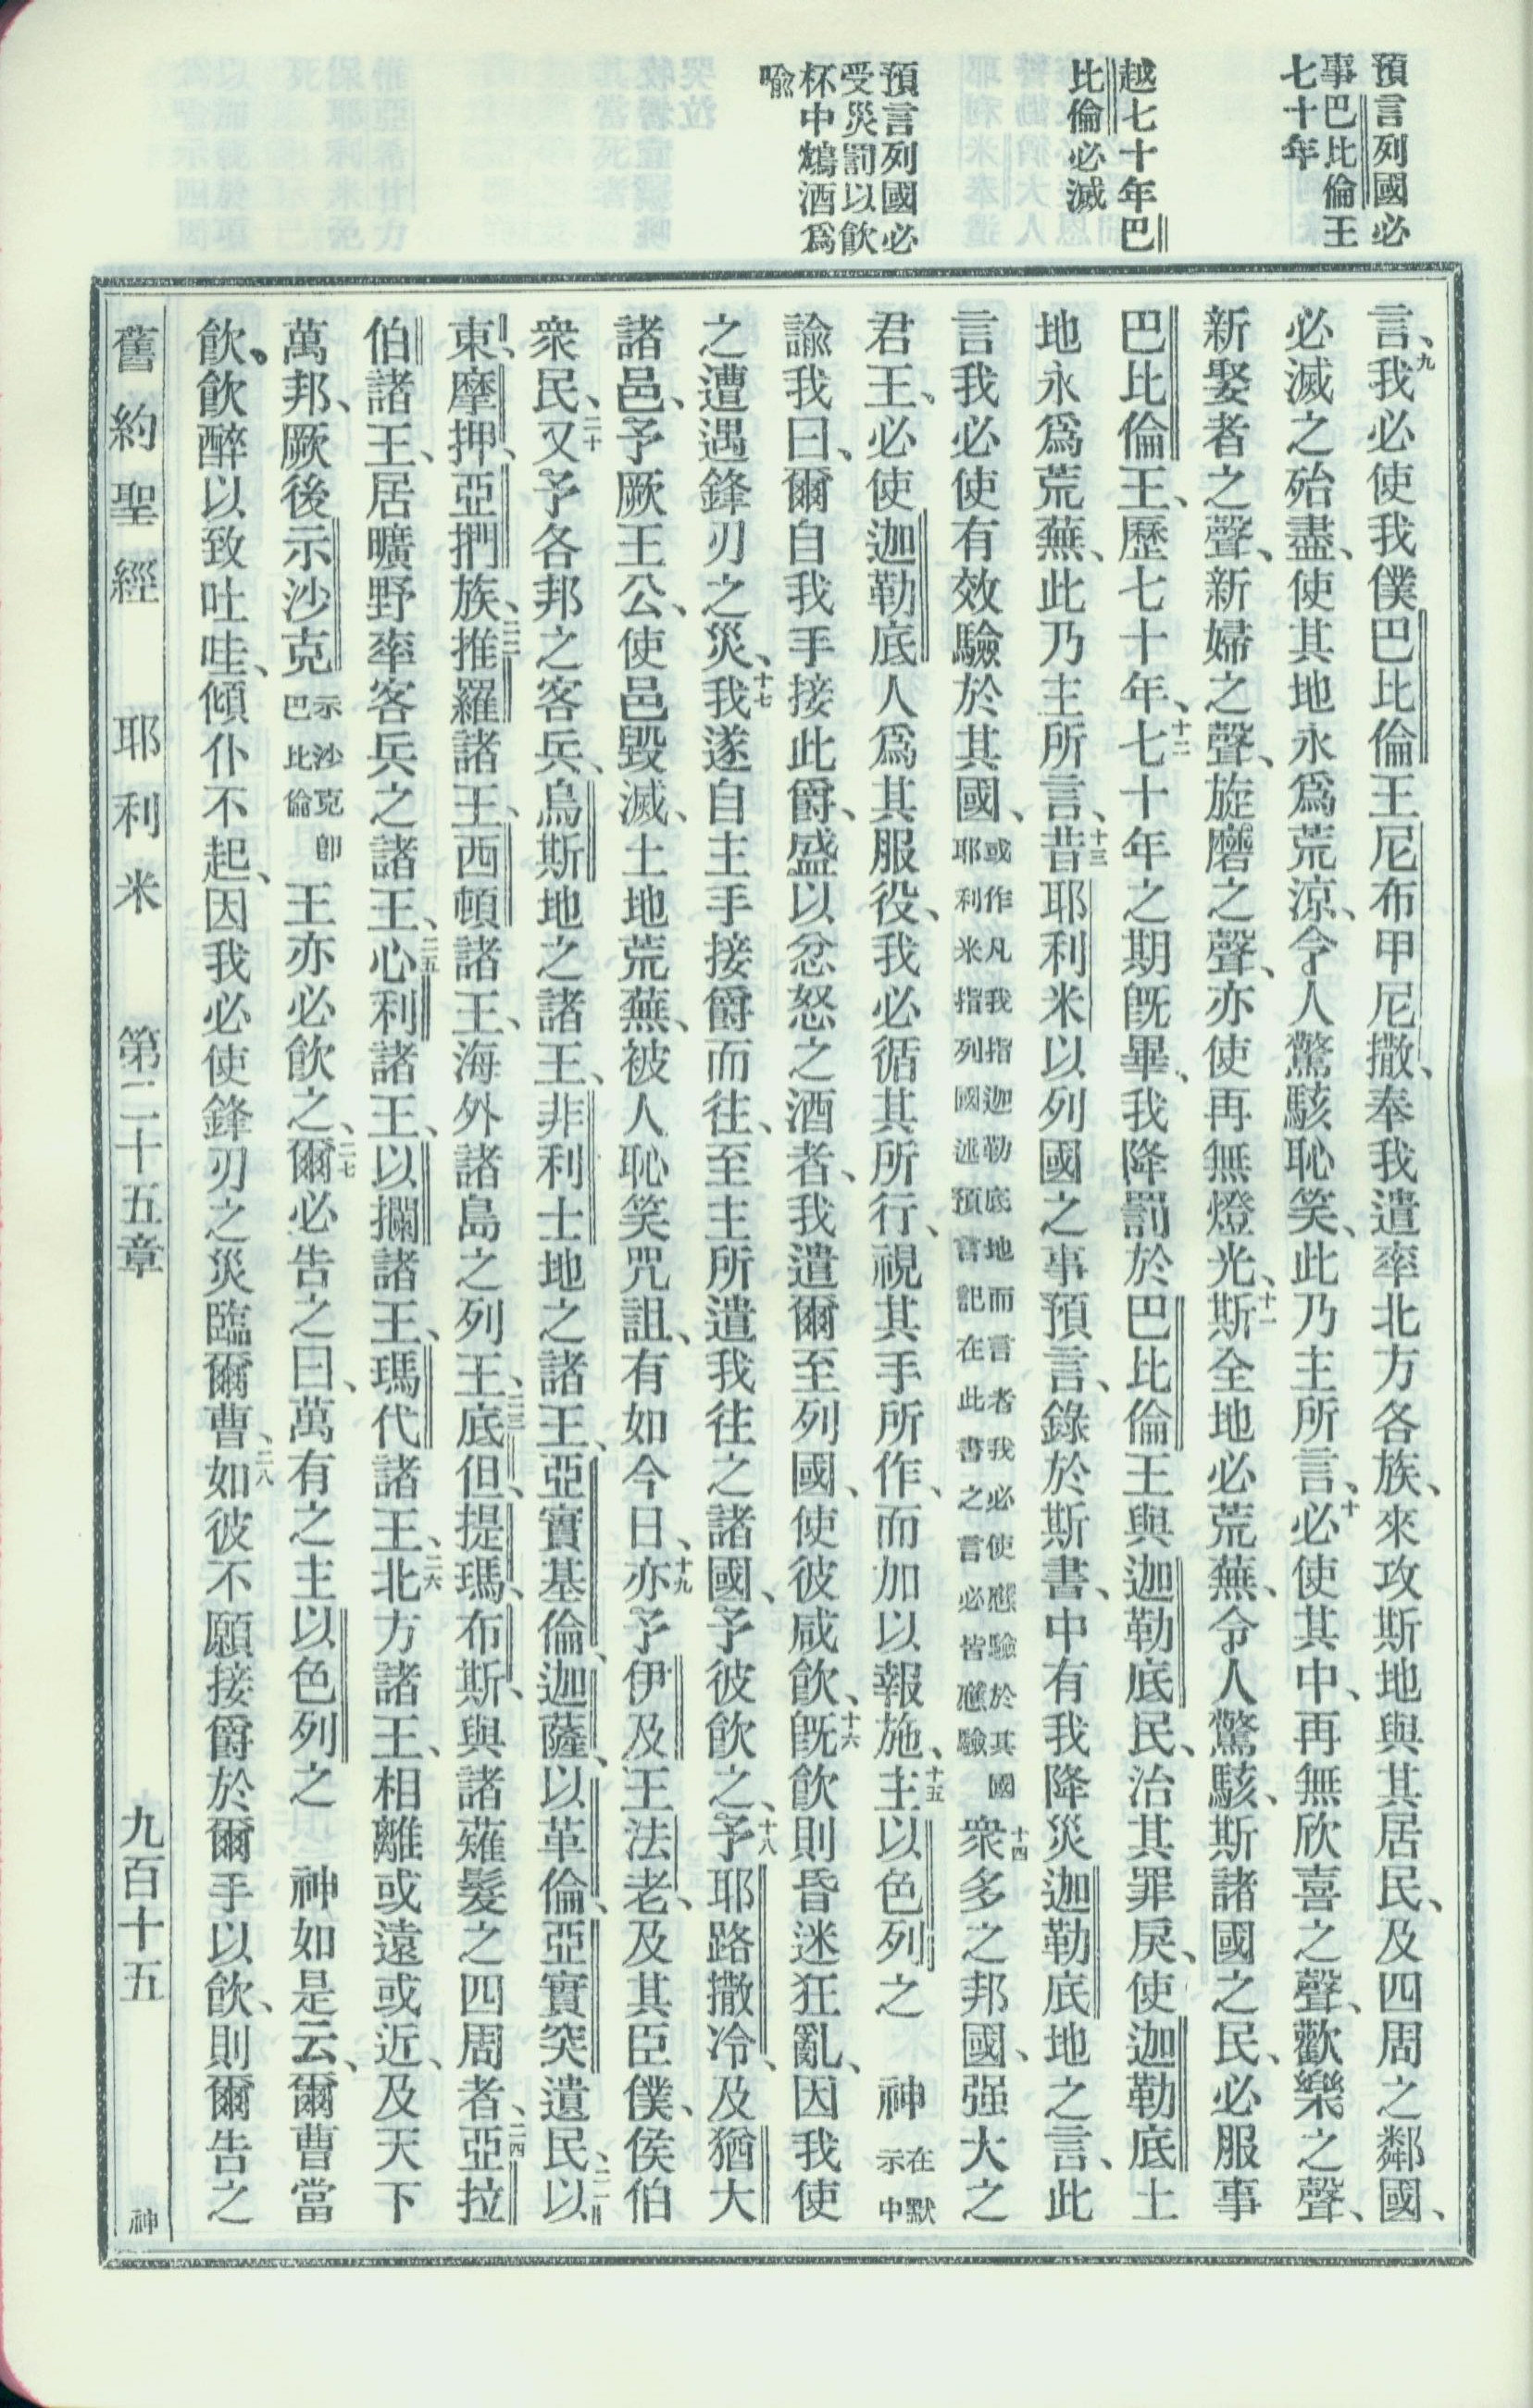 預言列國必
事巴比倫王
七十年
越七十年巴
比倫必滅
預言列國必
受災罰以飲
杯中鴆酒爲
喻
言、九我必使我僕巴比倫王尼布甲尼撒、奉我遣率北方各族、來攻斯地與其居民、及四周之鄰國、
必滅之殆盡、使其地永爲荒涼、令人驚駭恥笑、此乃主所言、十必使其中、再無欣喜之聲、歡樂之聲、
新娶者之聲、新婦之聲、旋磨之聲、亦使再無燈光、十一斯全地必荒蕪、令人驚駭、斯諸國之民、必服事
巴比倫王、歷七十年、十二七十年之期旣畢、我降罰於巴比倫王與迦勒底民、治其罪戾、使迦勒底土
地永爲荒蕪、此乃主所言、十三昔耶利米以列國之事預言、錄於斯書、中有我降災迦勒底地之言、此
言我必使有效驗於其國、或作凡我指迦勒底地而言者我必使應驗於其國耶利米指列國述預言記在此書之言必皆應驗十四衆多之邦國、强大之
君王、必使迦勒底人爲其服役、我必循其所行、視其手所作、而加以報施、十五主以色列之 神在默示中
諭我曰、爾自我手接此爵、盛以忿怒之酒者、我遣爾至列國、使彼咸飲、十六旣飲則昏迷狂亂、因我使
之遭遇鋒刃之災、十七我遂自主手接爵而往、至主所遣我往之諸國、予彼飲之、十八予耶路撒冷、及猶大
諸邑、予厥王公、使邑毀滅、土地荒蕪、被人恥笑咒詛、有如今日、十九亦予伊及王法老、及其臣僕、侯伯
衆民、二十又予各邦之客兵、烏斯地之諸王、非利士地之諸王、亞實基倫、迦薩、以革倫、亞實突遺民、二一以
東、摩押、亞捫族、二二推羅諸王、西頓諸王、海外諸島之列王、二三底但、提瑪、布斯、與諸薙髮之四周者、二四亞拉
伯諸王、居曠野率客兵之諸王、二五心利諸王、以攔諸王、瑪代諸王、二六北方諸王、相離或遠或近、及天下
萬邦、厥後示沙克示沙克卽巴比倫王亦必飲之、二七爾必告之曰、萬有之主以色列之 神如是云、爾曹當
飲、飲醉以致吐哇、傾仆不起、因我必使鋒刃之災臨爾曹、二八如彼不願接爵於爾手以飲、則爾告之
舊約聖經 耶利米 第二十五章 九百十五 神